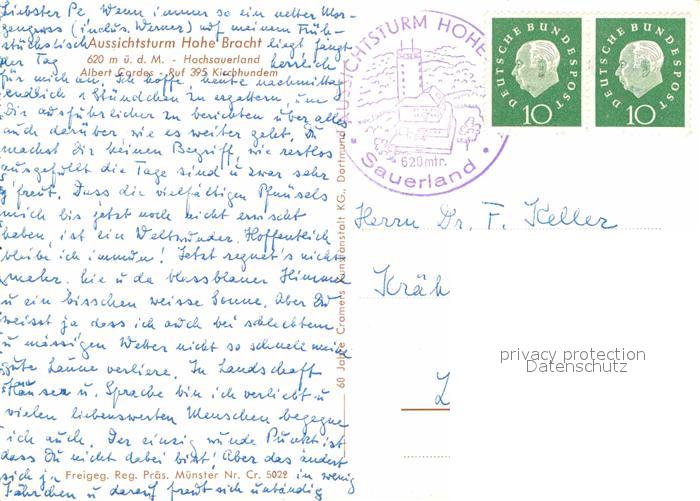 Liebster Pe. Wenn immer so ein netter Mor-
gengruss (inclus. Werner) auf meinem Früh-
stückstisch liegt, fängt
der Tag herrlich
für mich an. Ich hoffe heute nachmittag
endlich 1 Stündchen zu ergattern, um
Dir ausführlicher zu berichten über alles
auch darüber wie es weiter geht. Du
machst Dir keinen Begriff, wie restlos
ausgefüllt die Tage sind u zwar sehr
z' freut. Dass die vielfältigen Pfnüsels
mich bis jetzt noch nicht erwischt
haben, ist ein Weltwunder. Hoffentlich
bleibe ich immun! Jetzt regnet's nicht
mehr, hie u da blassblauer Himmel
u ein bisschen weisse Sonne. Aber Du
weisst ja dass ich auch bei schlechtem
u mässigem Wetter nicht so schnell meine
gute Laune verliere. In Landschaft
Häuser u. Sprache bin ich verliebt u
vielen liebenswerten Menschen begegne
ich auch. Der einzig wunde Punkt ist
dass Du nicht dabei bist! Aber das ändert
sich ja in wenig
Jährchen u darauf freut sich unbändig
Aussichtsturm Hohe Bracht
620 m ü. d. M. - Hochsauerland
Albert Cordes - Ruf 395 Kirchhundem
Freigeg. Reg. Präs. Münster Nr. Cr. 5022
60 Jahre Cramers Kunstanstalt KG., Dortmund
AUSSICHTSTURM HOHE
620 mtr.
Sauerland
DEUTSCHE BUNDESPOST
10
DEUTSCHE BUNDESPOST
10
Herrn Dr. F. Keller
Kräh
L
privacy protection
Datenschutz